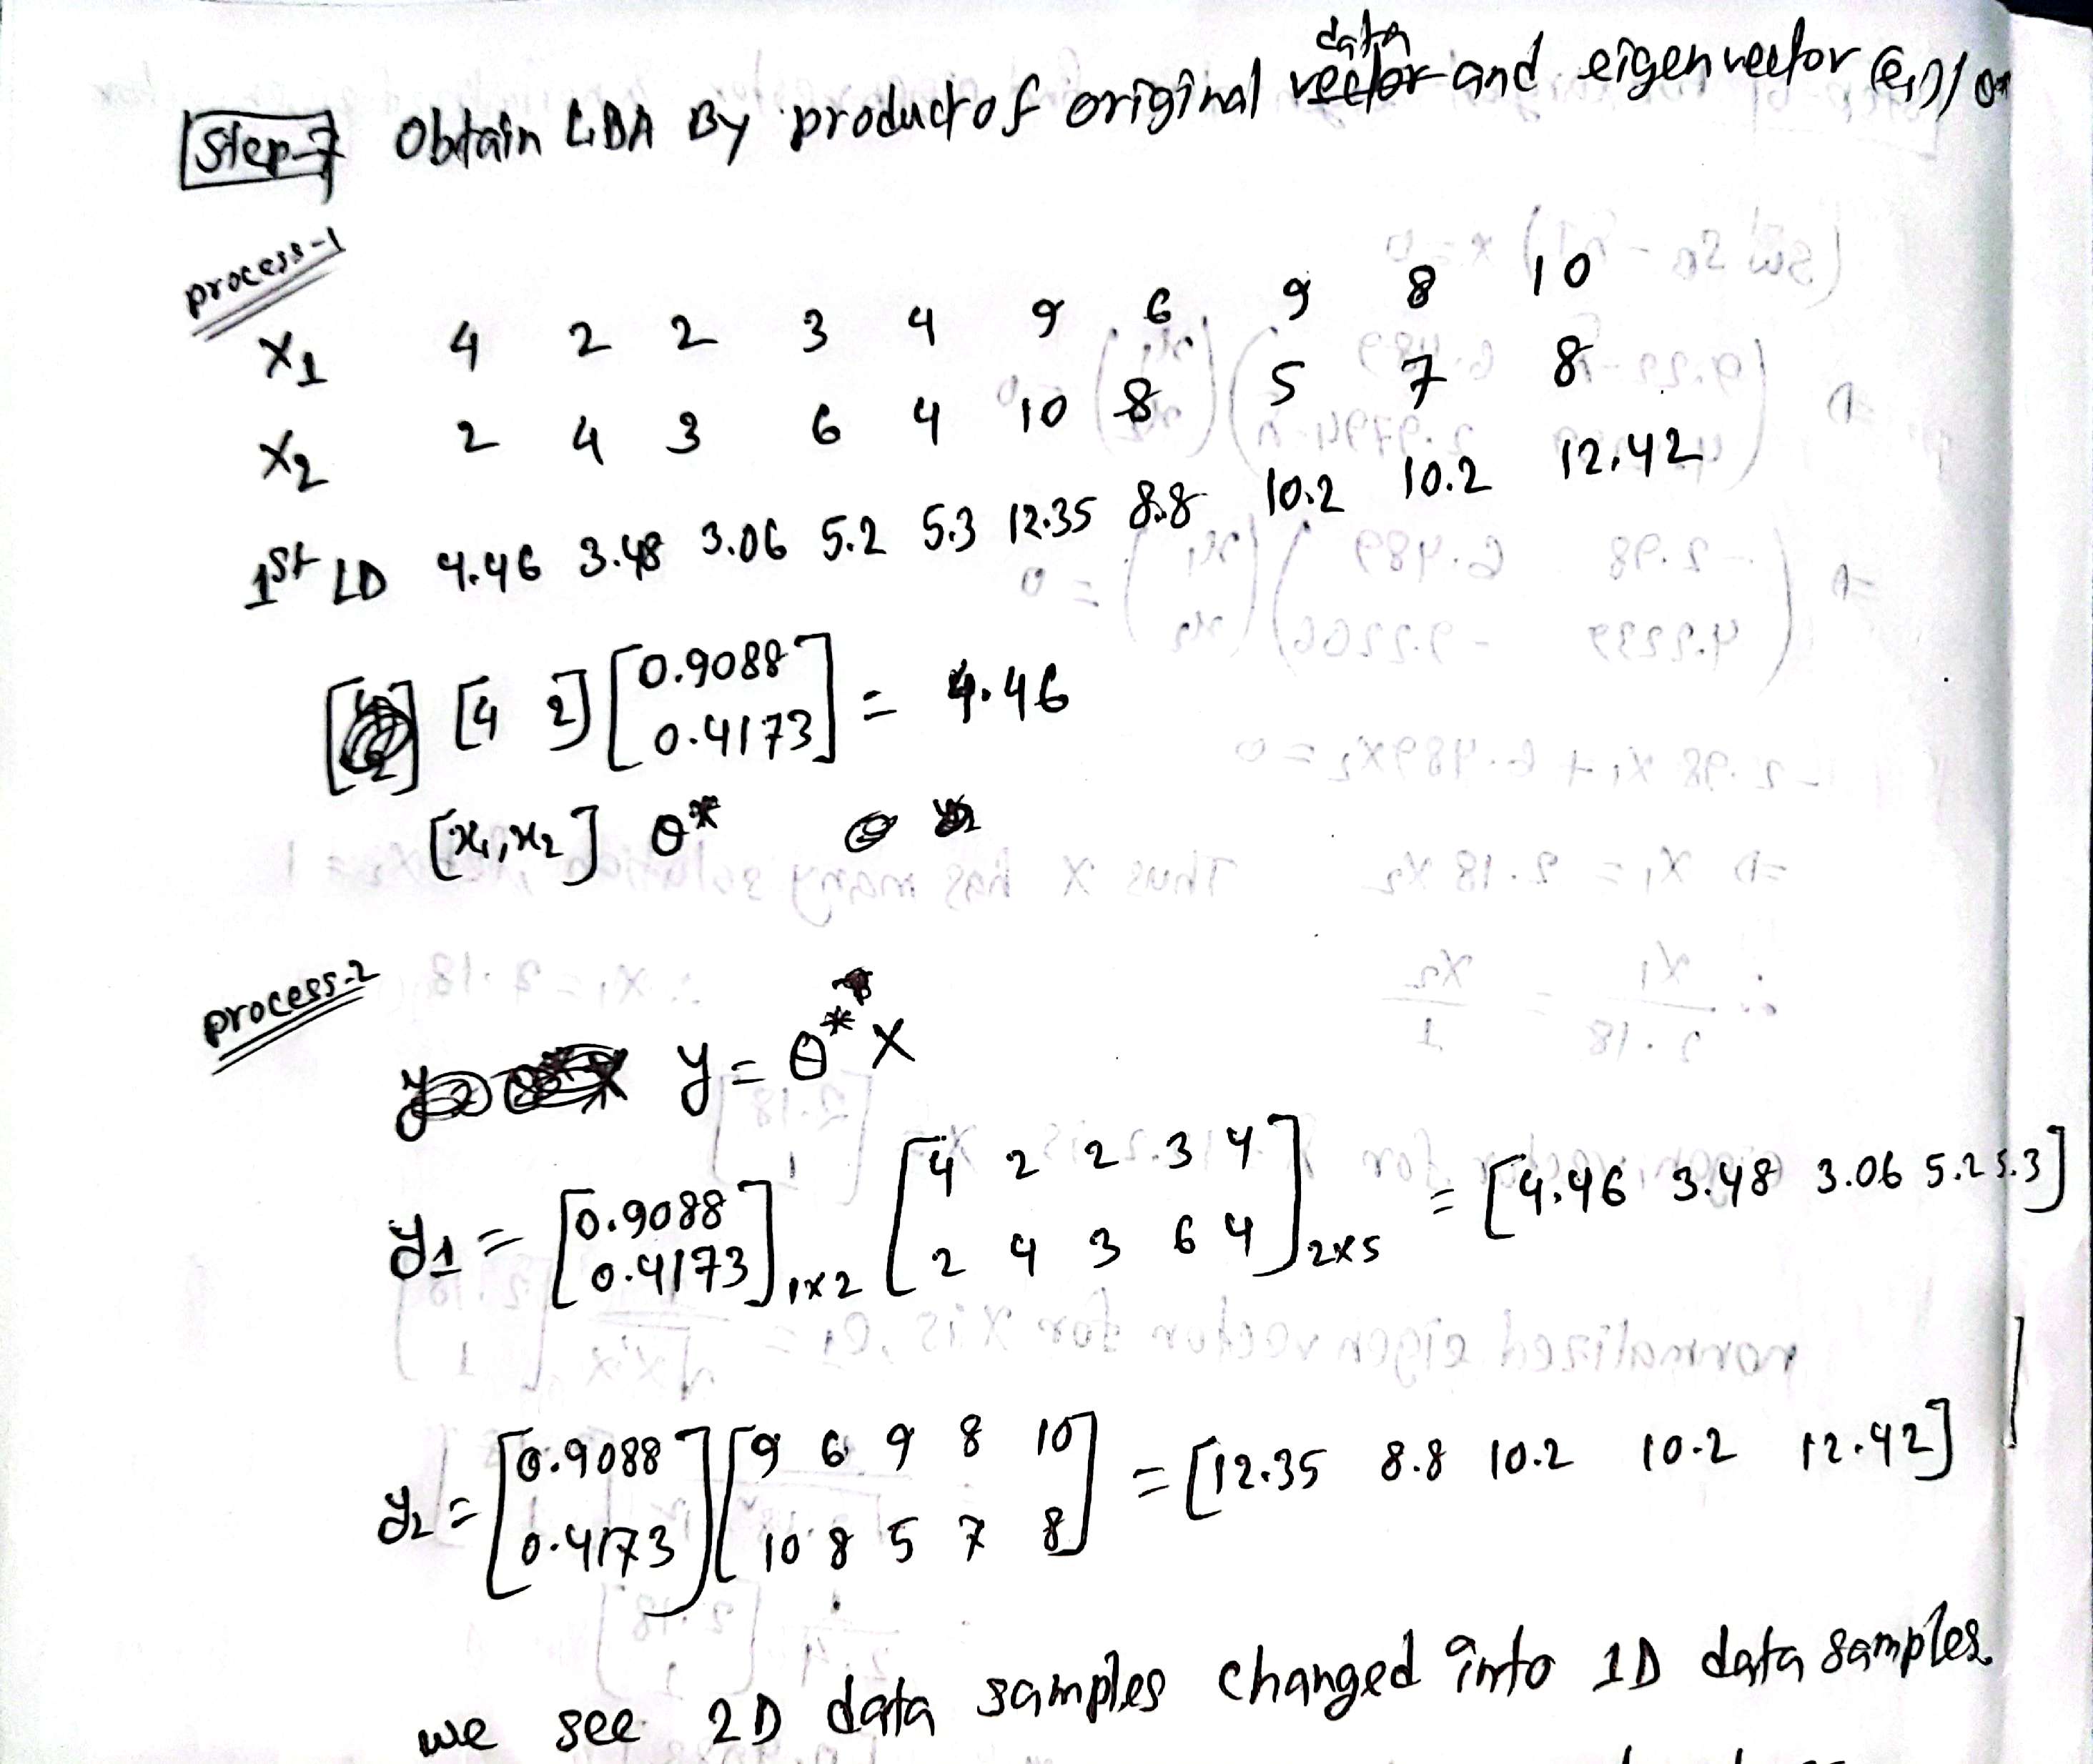 Step-7 Obtain LDA By product of original data and eigen vector (e1) / θ*
process-1
X1 4 2 2 3 4 9 6 9 8 10
X2 2 4 3 6 4 10 8 5 7 8
1st LD 4.46 3.48 3.06 5.2 5.3 12.35 8.8 10.2 10.2 12.42
[4 2] [0.9088
0.4173] = 4.46
[x1, x2] θ*
process-2
y = θ* X
y1 = [0.9088
0.4173]1×2 [4 2 2 3 4
2 4 3 6 4]2×5 = [4.46 3.48 3.06 5.2 5.3]
y2 = [0.9088
0.4173] [9 6 9 8 10
10 8 5 7 8] = [12.35 8.8 10.2 10.2 12.42]
we see 2D data samples changed into 1D data samples